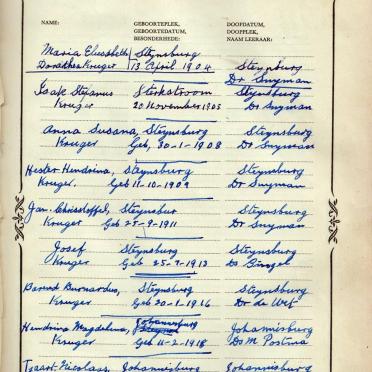 NAME:
GEBOORTEPLEK, GEBOORTEDATUM, BESONDERHEDE:
DOOPDATUM, DOOPPLEK, NAAM LEERAAR:
Maria Elizabeth Steynsburg
Dorothea Kruger 13 April 1904 Steynsburg
Dr Snyman
Izak Stefanus Sterkstroom Steynsburg
Kruger 20 November 1905 Dr Snyman
Anna Susana, Steynsburg Steynsburg
Kruger Geb, 30-1-1908 Dr Snyman
Hester Hendrina, Steynsburg Steynsburg
Kruger. Geb 11-10-1909 Dr Snyman
Jan Christoffel, Steynsbur Steynsburg
Kruger Geb 25-9-1911 Dr Snyman
Josef Steynsburg Steynsburg
Kruger Geb 25-7-1913 Ds
Barend Burnardus, Steynsburg Steynsburg
Kruger Geb 20-1-1916 Dr de Wet
Hendrina Magdelena, Johanisburg Johannisburg
Kruger Geb 11-2-1918 Ds M Postma
Tjaart Nicolaas, Johannisburg Johannisburg